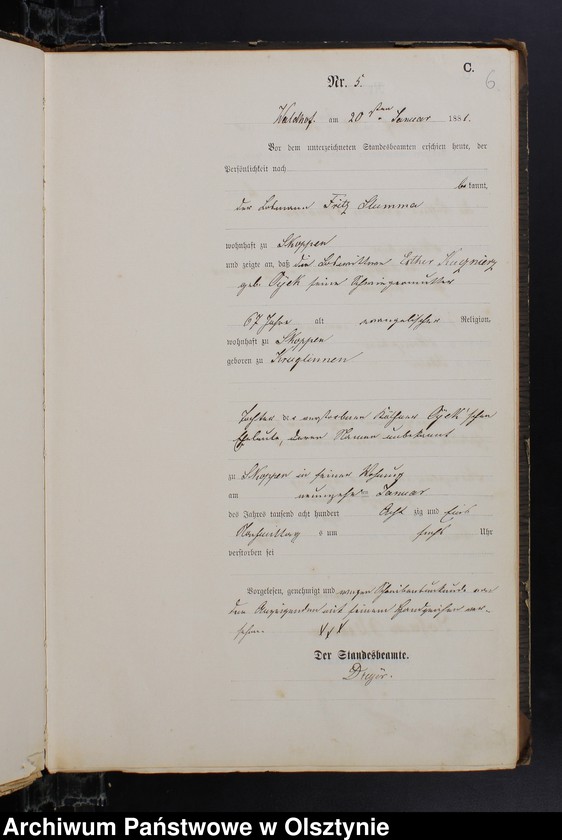 C.
6
Nr. 5.
Waldhof am 20sten Januar 1881.
Vor dem unterzeichneten Standesbeamten erschien heute, der
Persönlichkeit nach
be kannt,
der Losmann Fritz Stumma
wohnhaft zu Skoppen
und zeigte an, daß die Loswittwe Esther
geb. seine Schwiegermutter
67 Jahre alt evangelischer Religion,
wohnhaft zu Skoppen
geboren zu Kruglinnen
Tochter der verstorbenen Käthner 'schen
Eheleute, deren Namen unbekannt
zu Skoppen in seiner Wohnung
am neunzehn Januar
des Jahres tausend acht hundert Acht zig und Eins
Nachmittag s um sechs Uhr
verstorben sei
Vorgelesen, genehmigt und wegen Schreibensunkunde von
dem Anzeigenden mit seinem Handzeichen ver-
sehen. XXX
Der Standesbeamte.